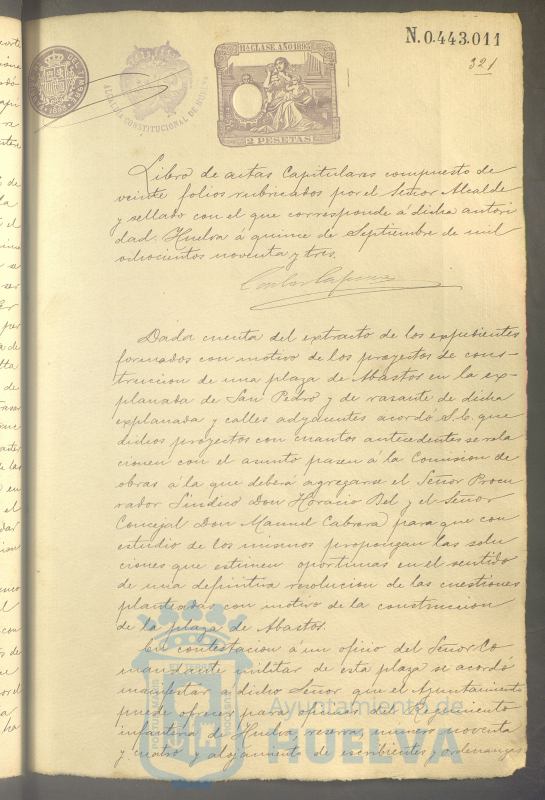 N.0.443.011
321
11ª CLASE AÑO 1893
2 PESETAS
ALCALDIA CONSTITUCIONAL DE HUELVA
Libro de actas Capitulares compuesto de
veinte folios rubricados por el Señor Alcalde
y sellado con el que corresponde á dicha autori
dad. Huelva á quince de Septiembre de mil
ochocientos noventa y tres.
Dada cuenta del extracto de los expedientes
formados con motivo de los proyectos de cons-
truccion de una plaza de Abastos en la ex-
planada de San Pedro y de rasante de dicha
explanada y calles adyacentes acordó S.E. que
dichos proyectos con cuantos antecedentes se rela
cionen con el asunto pasen á la Comision de
obras á la que deberá agregarse el Señor Procu
rador Sindico Don Horacio Bel y el Señor
Concejal Don Manuel Cabrera para que con
estudio de los mismos propongan las solu
ciones que estimen oportunas en el sentido
de una definitiva resolucion de las cuestiones
planteadas con motivo de la construccion
de la plaza de Abastos.
En contestacion á un oficio del Señor Co
mandante militar de esta plaza se acordó
manifestar á dicho Señor que el Ayuntamiento
puede ofrecer para oficinas del Regimiento
infanteria de Huelva, reserva, numero noventa
y cuatro y alojamiento de escribientes y ordenanzas
Ayuntamiento de
HUELVA